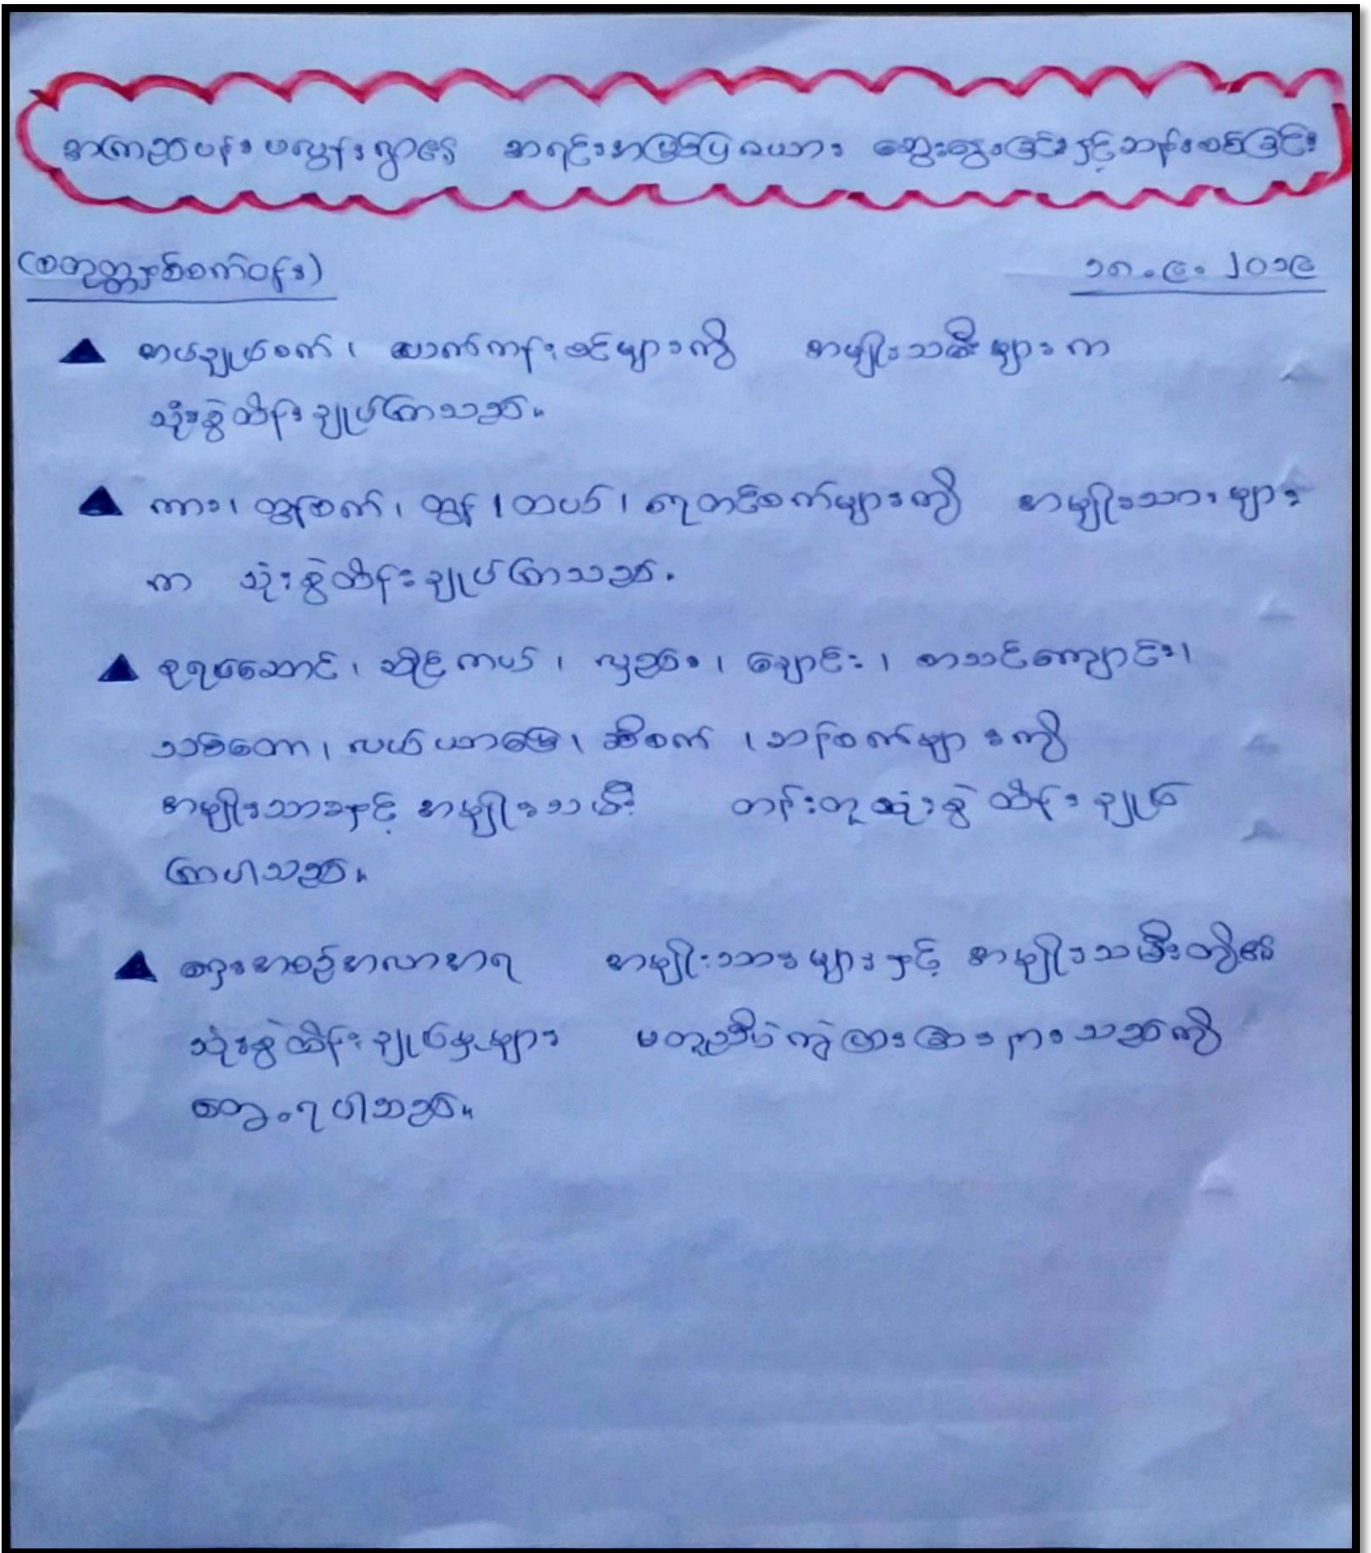 အကြည်ပန်းမလွန်းရွာ၏ အရင်းအမြစ်ပြဇယား ဆွေးနွေးခြင်းနှင့်ဆန်းစစ်ခြင်း
(စတုတ္ထနှစ်စက်ဝန်း) ၁၈.၉.၂၀၁၉
▲ အပ်ချုပ်စက်၊ ယက်ကန်းစင်များကို အမျိုးသမီးများက
သုံးစွဲထိန်းချုပ်ကြသည်။
▲ ကား၊ ထွန်စက်၊ ထွန်၊ ထယ်၊ ရေတင်စက်များကို အမျိုးသားများ
က သုံးစွဲထိန်းချုပ်ကြသည်.
▲ စုရပ်ဆောင်၊ ဆိုင်ကယ်၊ လှည်း၊ ချောင်း၊ စာသင်ကျောင်း၊
သစ်တော၊ လယ်ယာမြေ၊ ဆီစက်၊ ဆန်စက်များကို
အမျိုးသားနှင့် အမျိုးသမီး တန်းတူသုံးစွဲ ထိန်းချုပ်
ကြပါသည်။
▲ ရှေးအစဉ်အလာအရ အမျိုးသားများနှင့် အမျိုးသမီးတို့၏
သုံးစွဲထိန်းချုပ်မှုများ မတူညီပဲကွဲပြားခြားနားသည်ကို
တွေ့ရပါသည်။